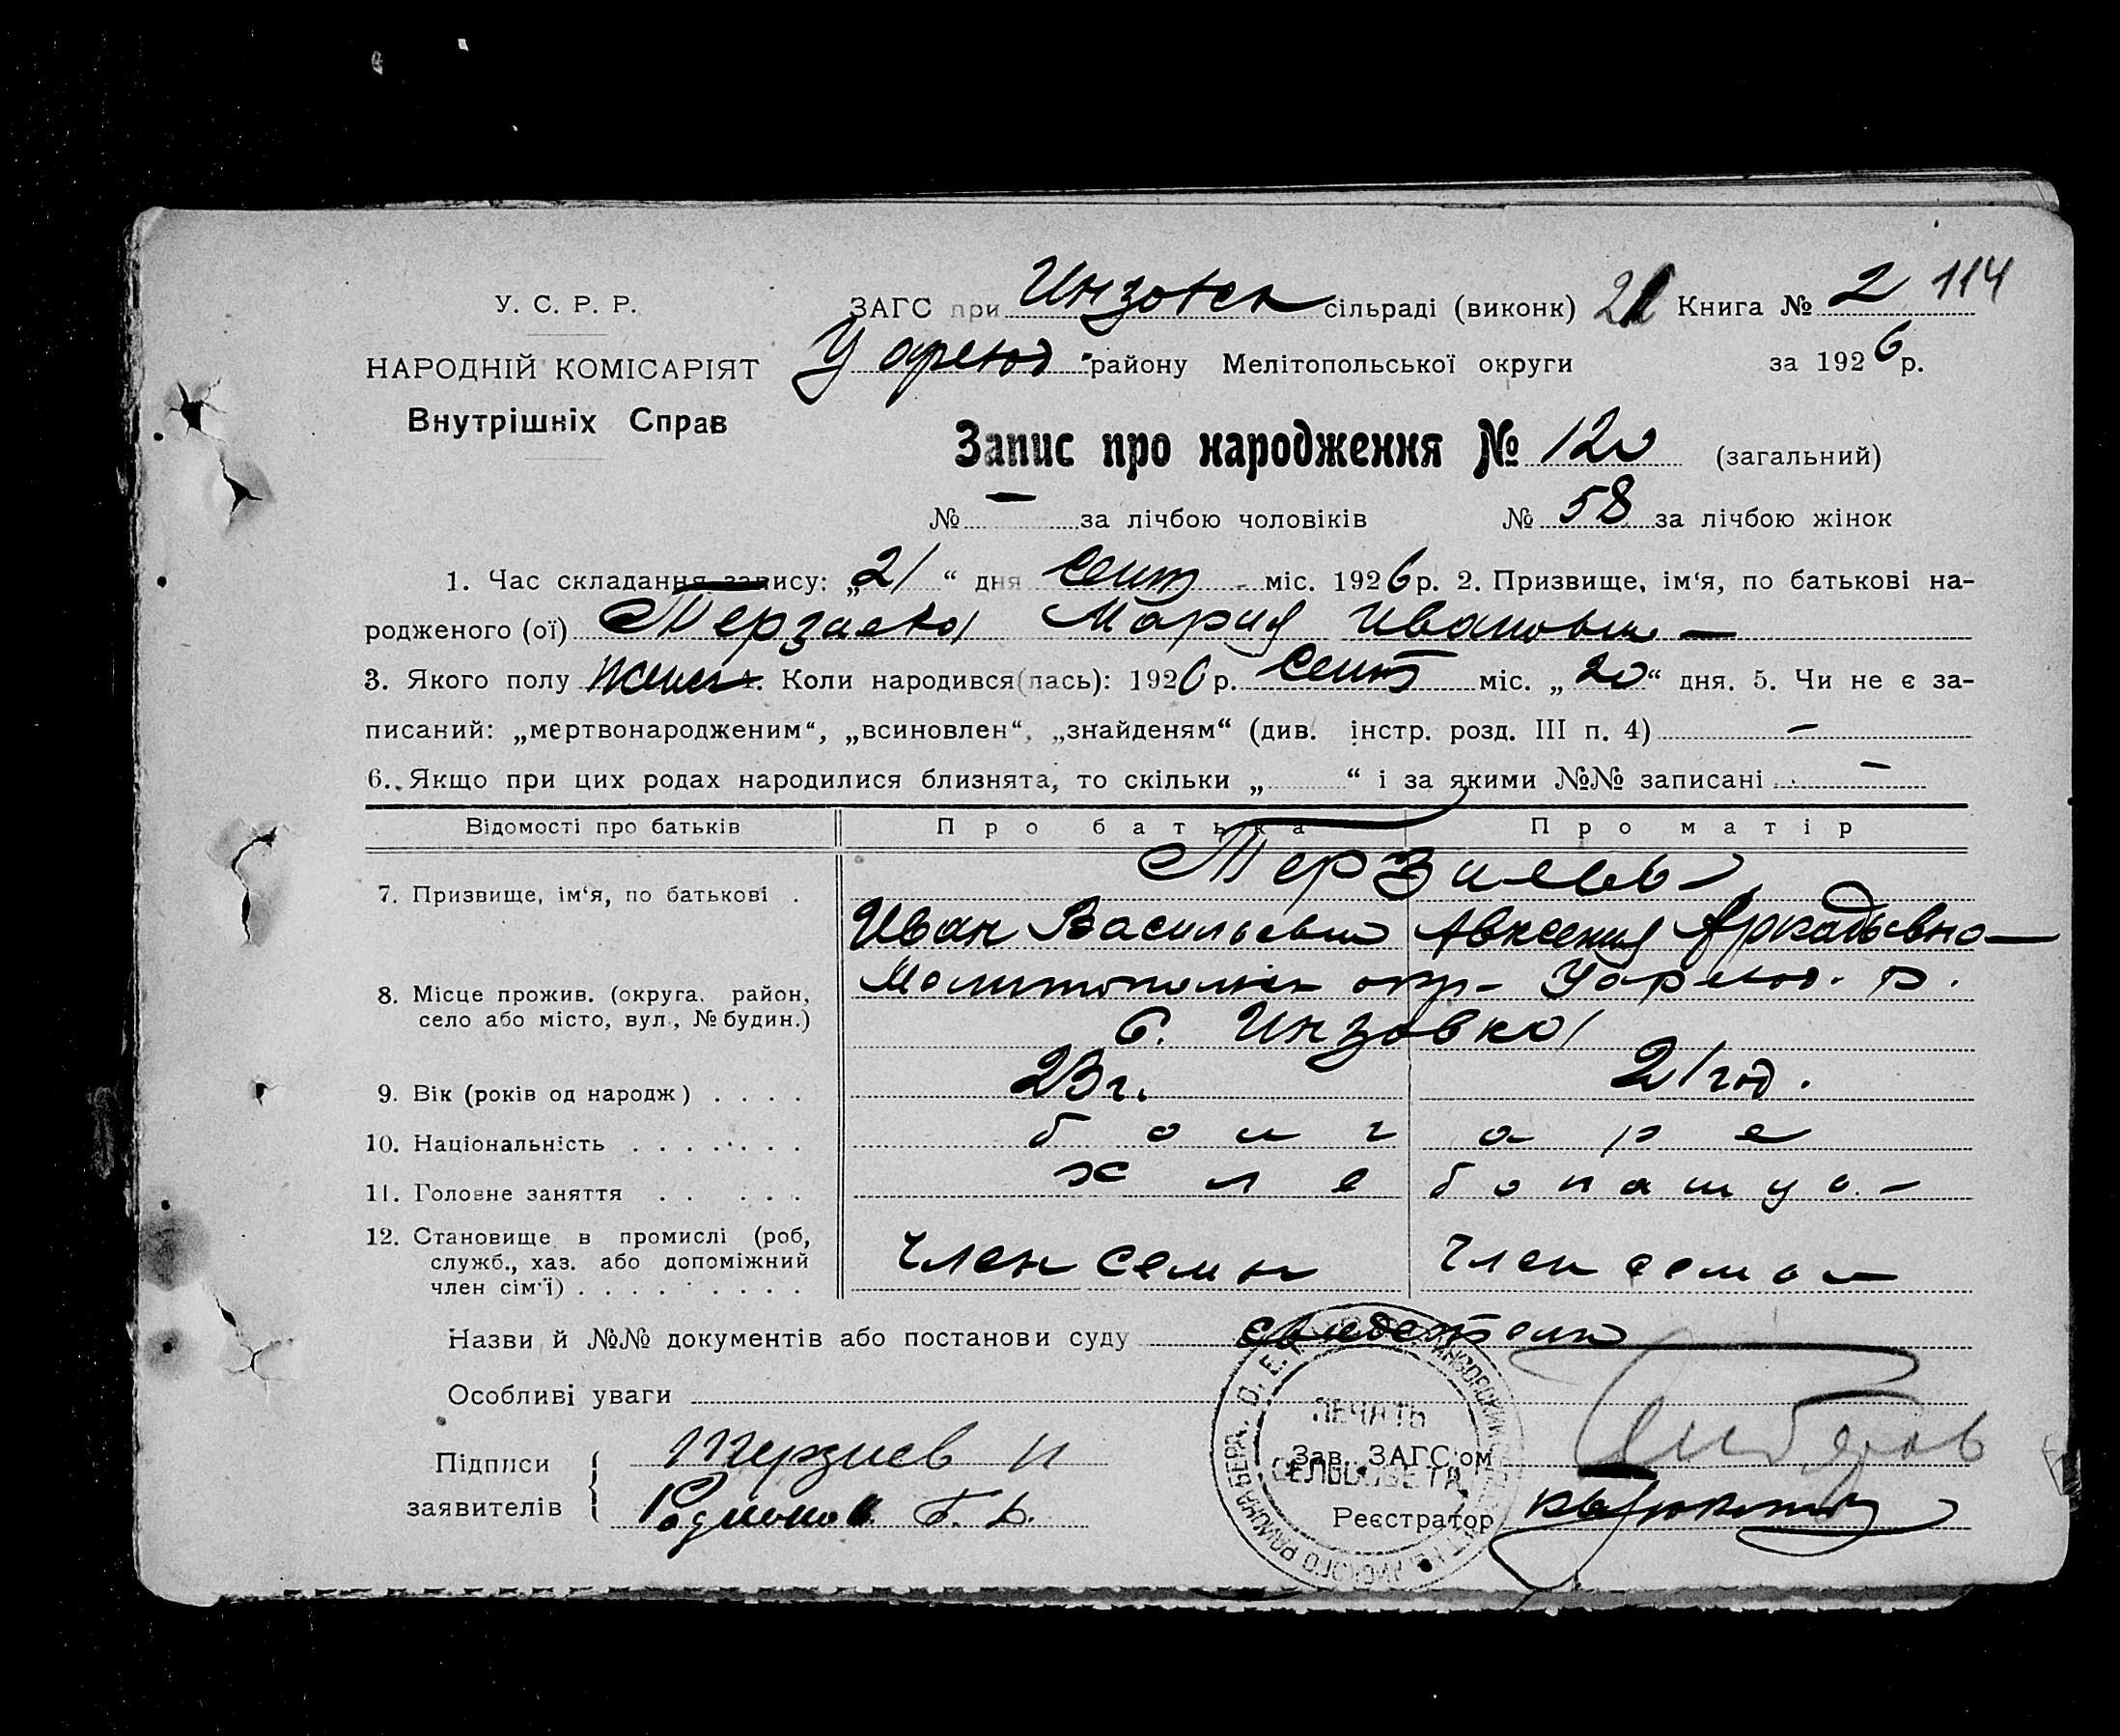 114
У. С. Р. Р. ЗАГС при Инзовск сільраді (виконк) 21 Книга № 2
НАРОДНІЙ КОМІСАРІЯТ району Мелітопольської округи за 1926 р.
Внутрішніх Справ
Запис про народження № 120 (загальний)
№ — за лічбою чоловіків № 58 за лічбою жінок
1. Час складання запису: „21“ дня сент міс. 1926 р. 2. Призвище, ім‘я, по батькові на-
родженого (ої) Терзиева Мария Ивановна —
3. Якого полу женск 4. Коли народився(лась): 1926 р. сент міс. „20“ дня. 5. Чи не є за-
писаний: „мертвонародженим“, „всиновлен“, „знайденям“ (див. інстр. розд. III п. 4) —
6. Якщо при цих родах народилися близнята, то скільки „ “ і за якими №№ записані —
Відомості про батьків Про батька Про матір
Терзиевы
7. Призвище, ім‘я, по батькові .
Иван Васильевич Авксения Аркадьевна —
8. Місце прожив. (округа, район, село або місто, вул., № будин.)
Мелитопольск окр- р.
с. Инзовка
9. Вік (років од народж) . . . . 23 г. 21 год.
10. Національність . . . . . . . болгаре
11. Головне заняття . . . . . хлебопашцы -
12. Становище в промислі (роб,
служб., хаз. або допоміжний
член сім‘ї) . . . . . . . . . член семьи член семьи
Назви й №№ документів або постанови суду свидетели
Особливі уваги
ПЕЧАТЬ
СЕЛЬСОВЕТА
Підписи Терзиев И Зав. ЗАГС‘ом
заявителів Родионов Г. Д. Реєстратор